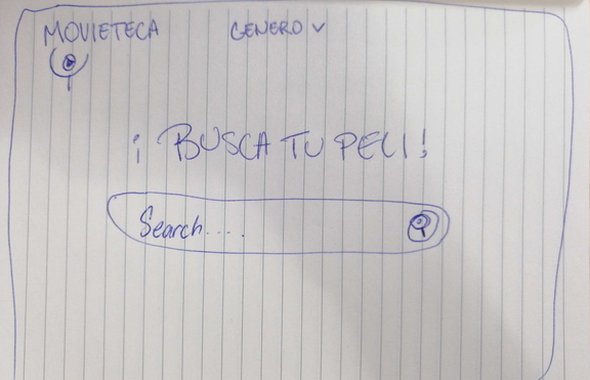 MOVIETECA GENERO
¡BUSCA TU PELI!
Search....